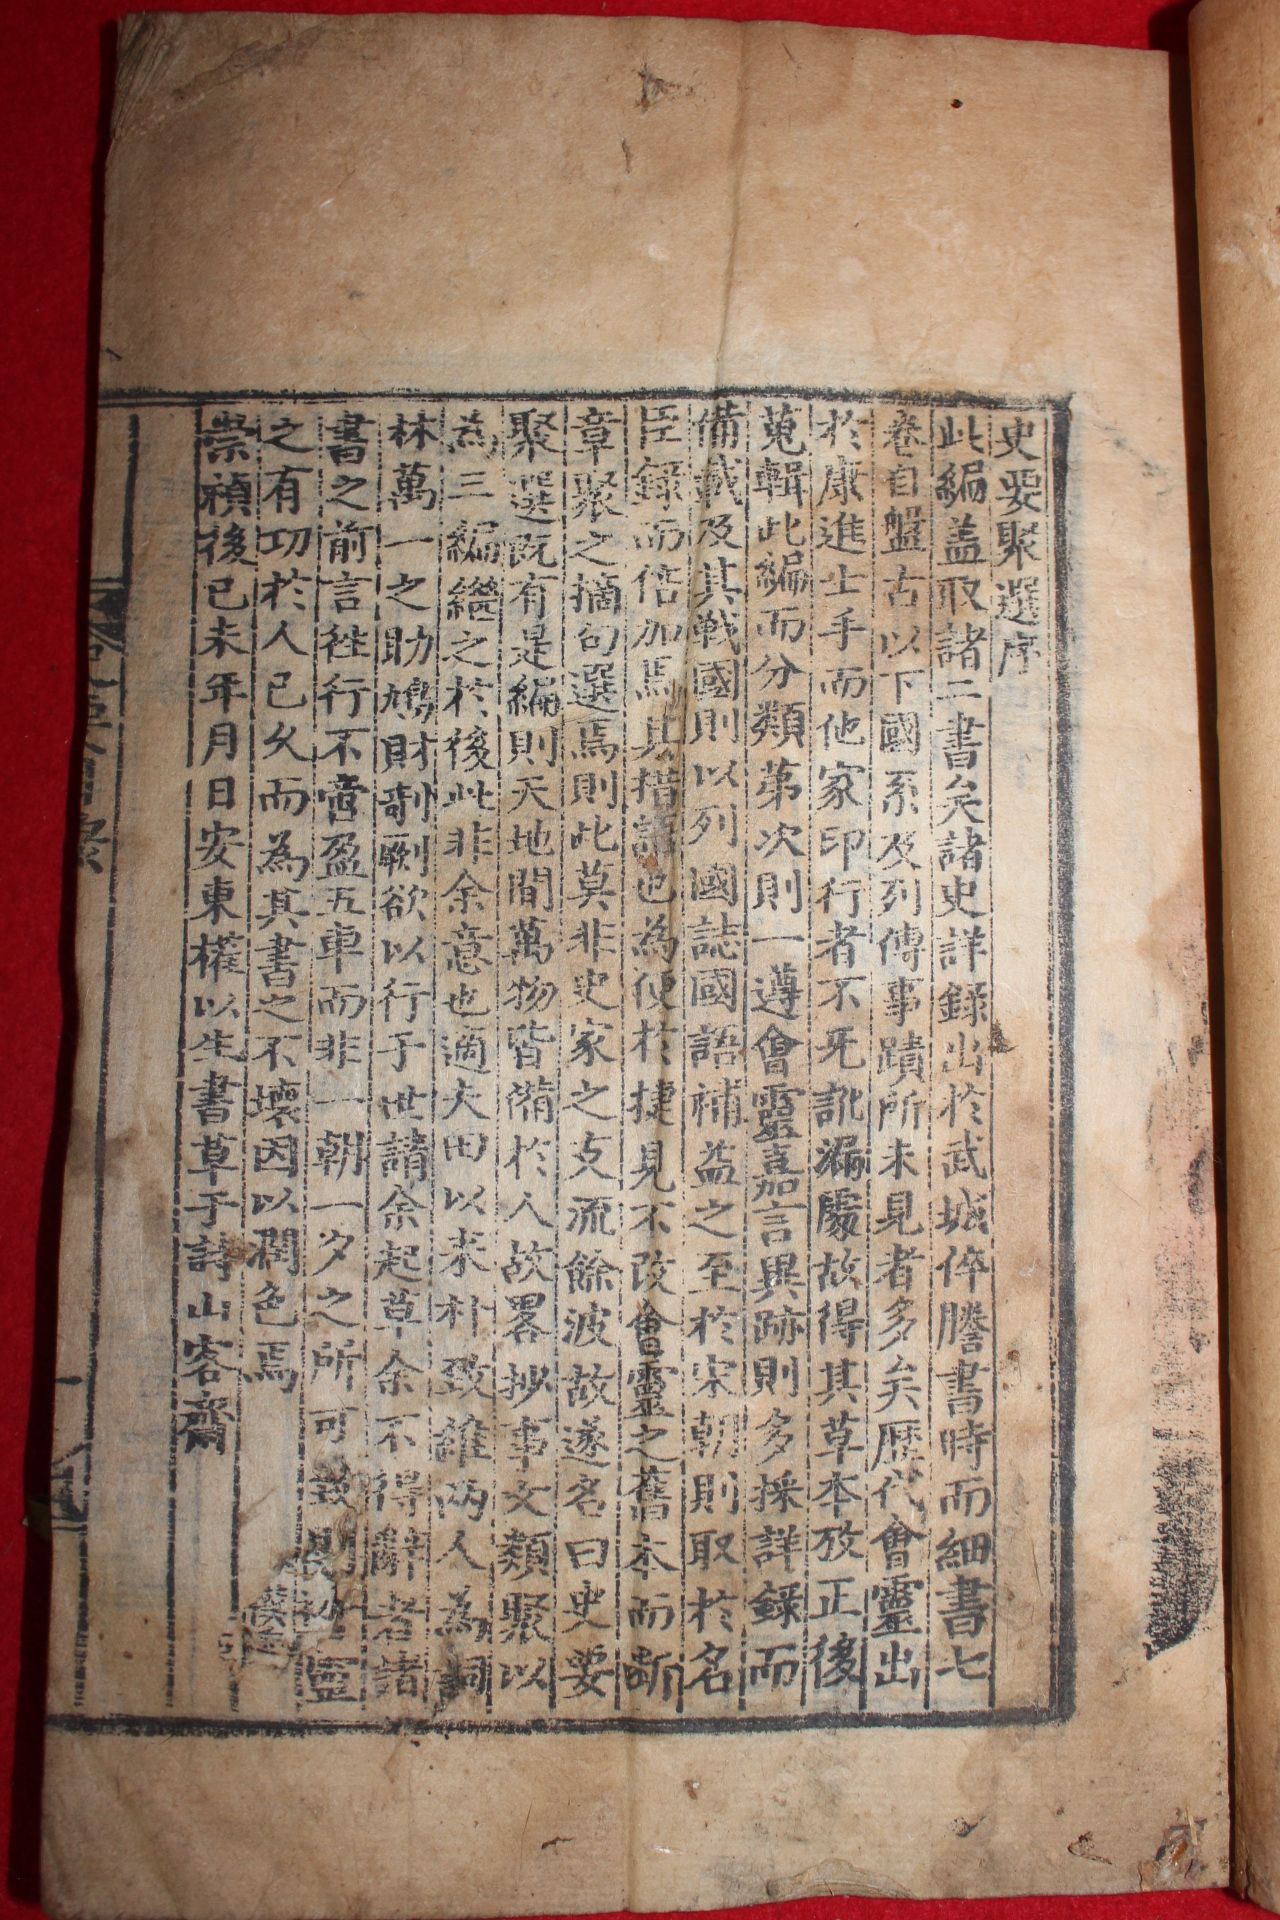 史要聚選序
此編盖取諸二書矣諸史詳錄出於武城倅謄書時而細書七
卷自盤古以下國系及列傳事蹟所未見者多矣歷代會靈出
於康進士手而他家印行者不死訛漏處故得其草本攷正後
蒐輯此編而分類第次則一遵會靈嘉言異跡則多採詳錄而
備載及其戰國則以列國誌國語補益之至於宋朝則取於名
臣錄而倍加焉其措語也為便於捷見不改會靈之舊本而斷
章聚之摘句選焉則此莫非史家之支流餘波故遂名曰史要
聚選旣有是編則天地間萬物皆備於人故畧抄事文類聚以
為三編繼之於後此非余意也適夫田以采朴致維兩人為詞
林萬一之助鳩財剞劂欲以行于世請余起草余不得辭者諸
書之前言徃行不啻盈五車而非一朝一夕之所可致則
之有功於人已久而為其書之不壞因以潤色焉
崇禎後已未年月日安東權以生書草于詩山客齋